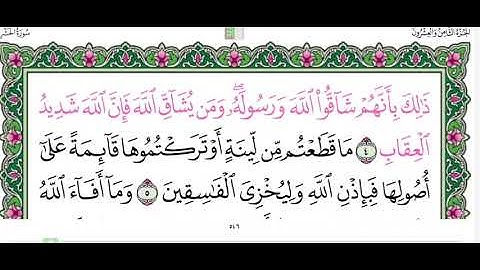 سُورَةُ الحَشْرِ
الجُزْءُ الثَّامِنُ وَالعِشْرُونَ
ذَٰلِكَ بِأَنَّهُمْ شَآقُّوا۟ ٱللَّهَ وَرَسُولَهُۥۖ وَمَن يُشَآقِّ ٱللَّهَ فَإِنَّ ٱللَّهَ شَدِيدُ
ٱلْعِقَابِ ٤ مَا قَطَعْتُم مِّن لِّينَةٍ أَوْ تَرَكْتُمُوهَا قَآئِمَةً عَلَىٰٓ
أُصُولِهَا فَبِإِذْنِ ٱللَّهِ وَلِيُخْزِىَ ٱلْفَٰسِقِينَ ٥ وَمَآ أَفَآءَ ٱللَّهُ
٥٤٦